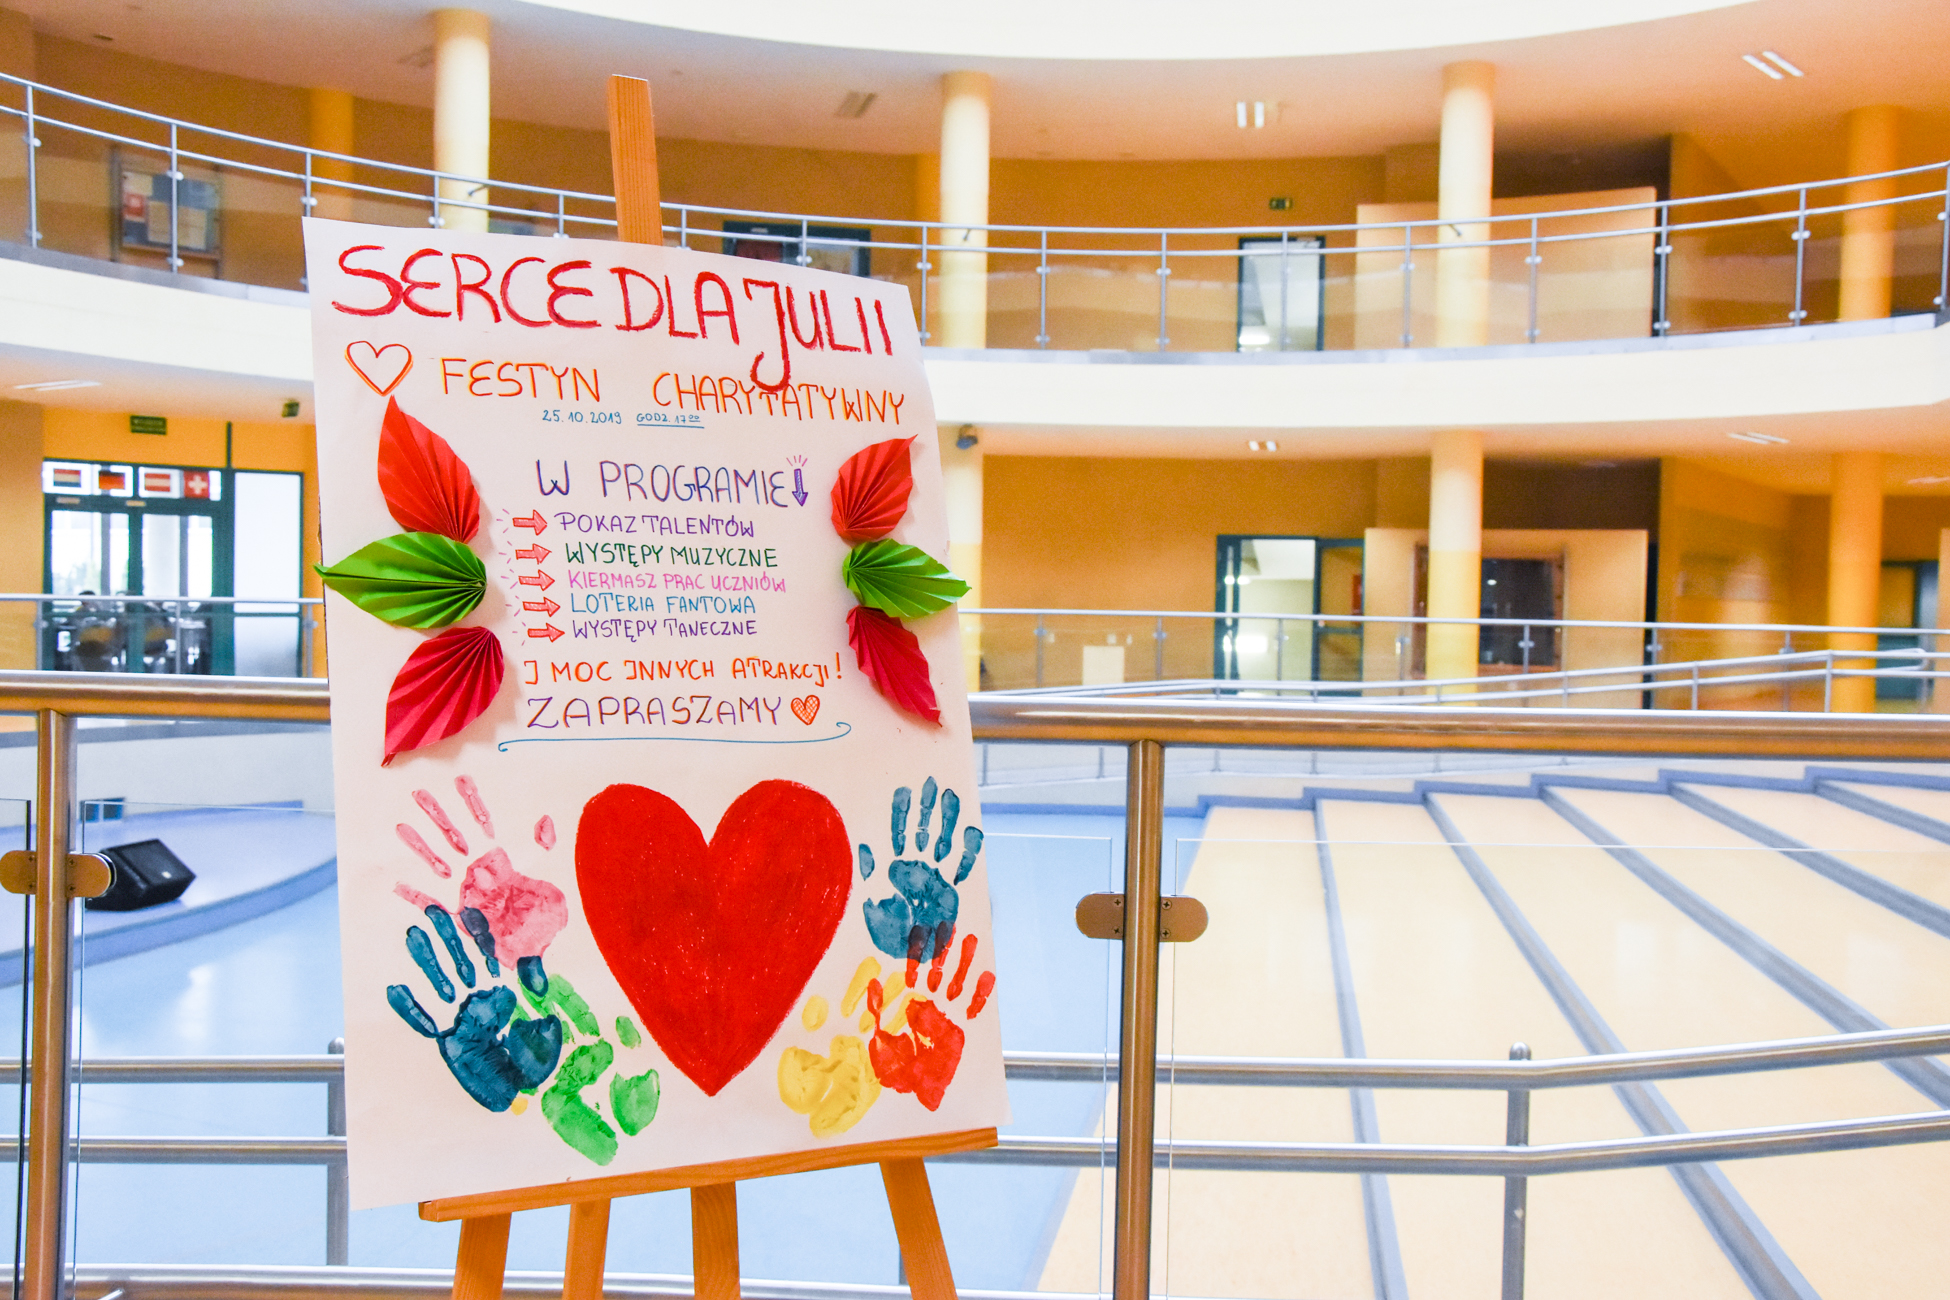 SERCE DLA JULII
FESTYN CHARYTATYWNY
25.10.2019 GODZ. 17⁰⁰
W PROGRAMIE
POKAZ TALENTÓW
WYSTĘPY MUZYCZNE
KIERMASZ PRAC UCZNIÓW
LOTERIA FANTOWA
WYSTĘPY TANECZNE
I MOC INNYCH ATRAKCJI!
ZAPRASZAMY